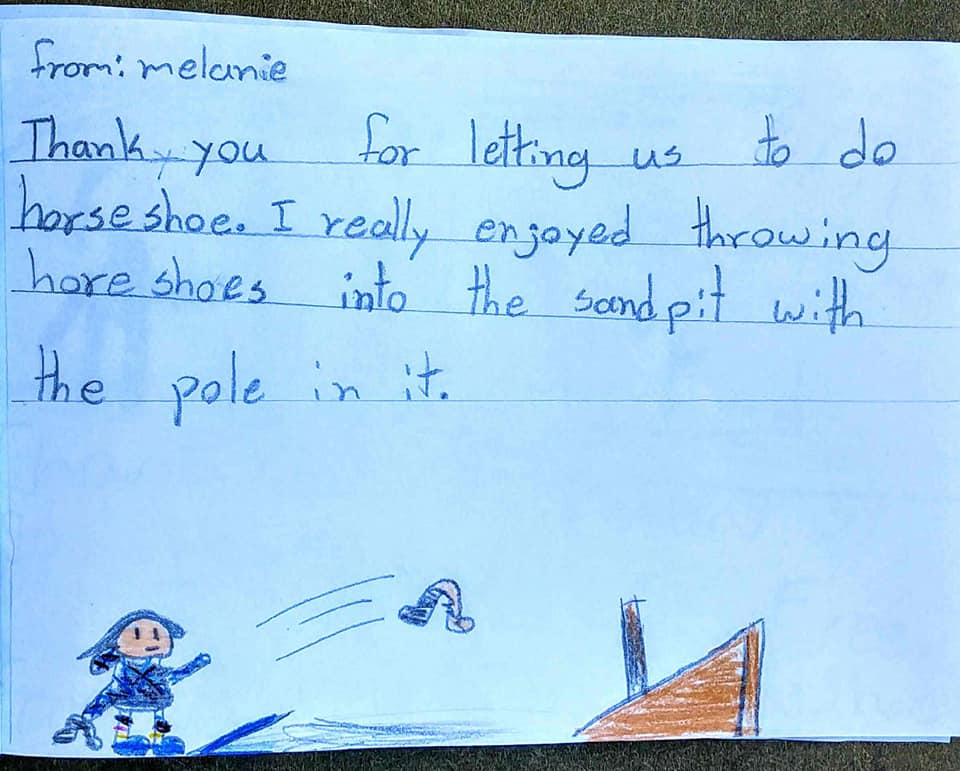 from: melanie
Thank you for letting us to do
horse shoe. I really enjoyed throwing
hore shoes into the sandpit with
the pole in it.